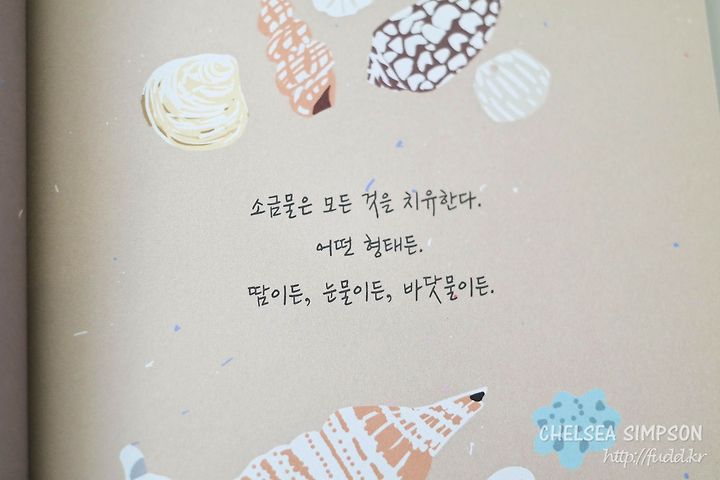 소금물은 모든 것을 치유한다.
어떤 형태든.
땀이든, 눈물이든, 바닷물이든.
CHELSEA SIMPSON
http://fudd.kr